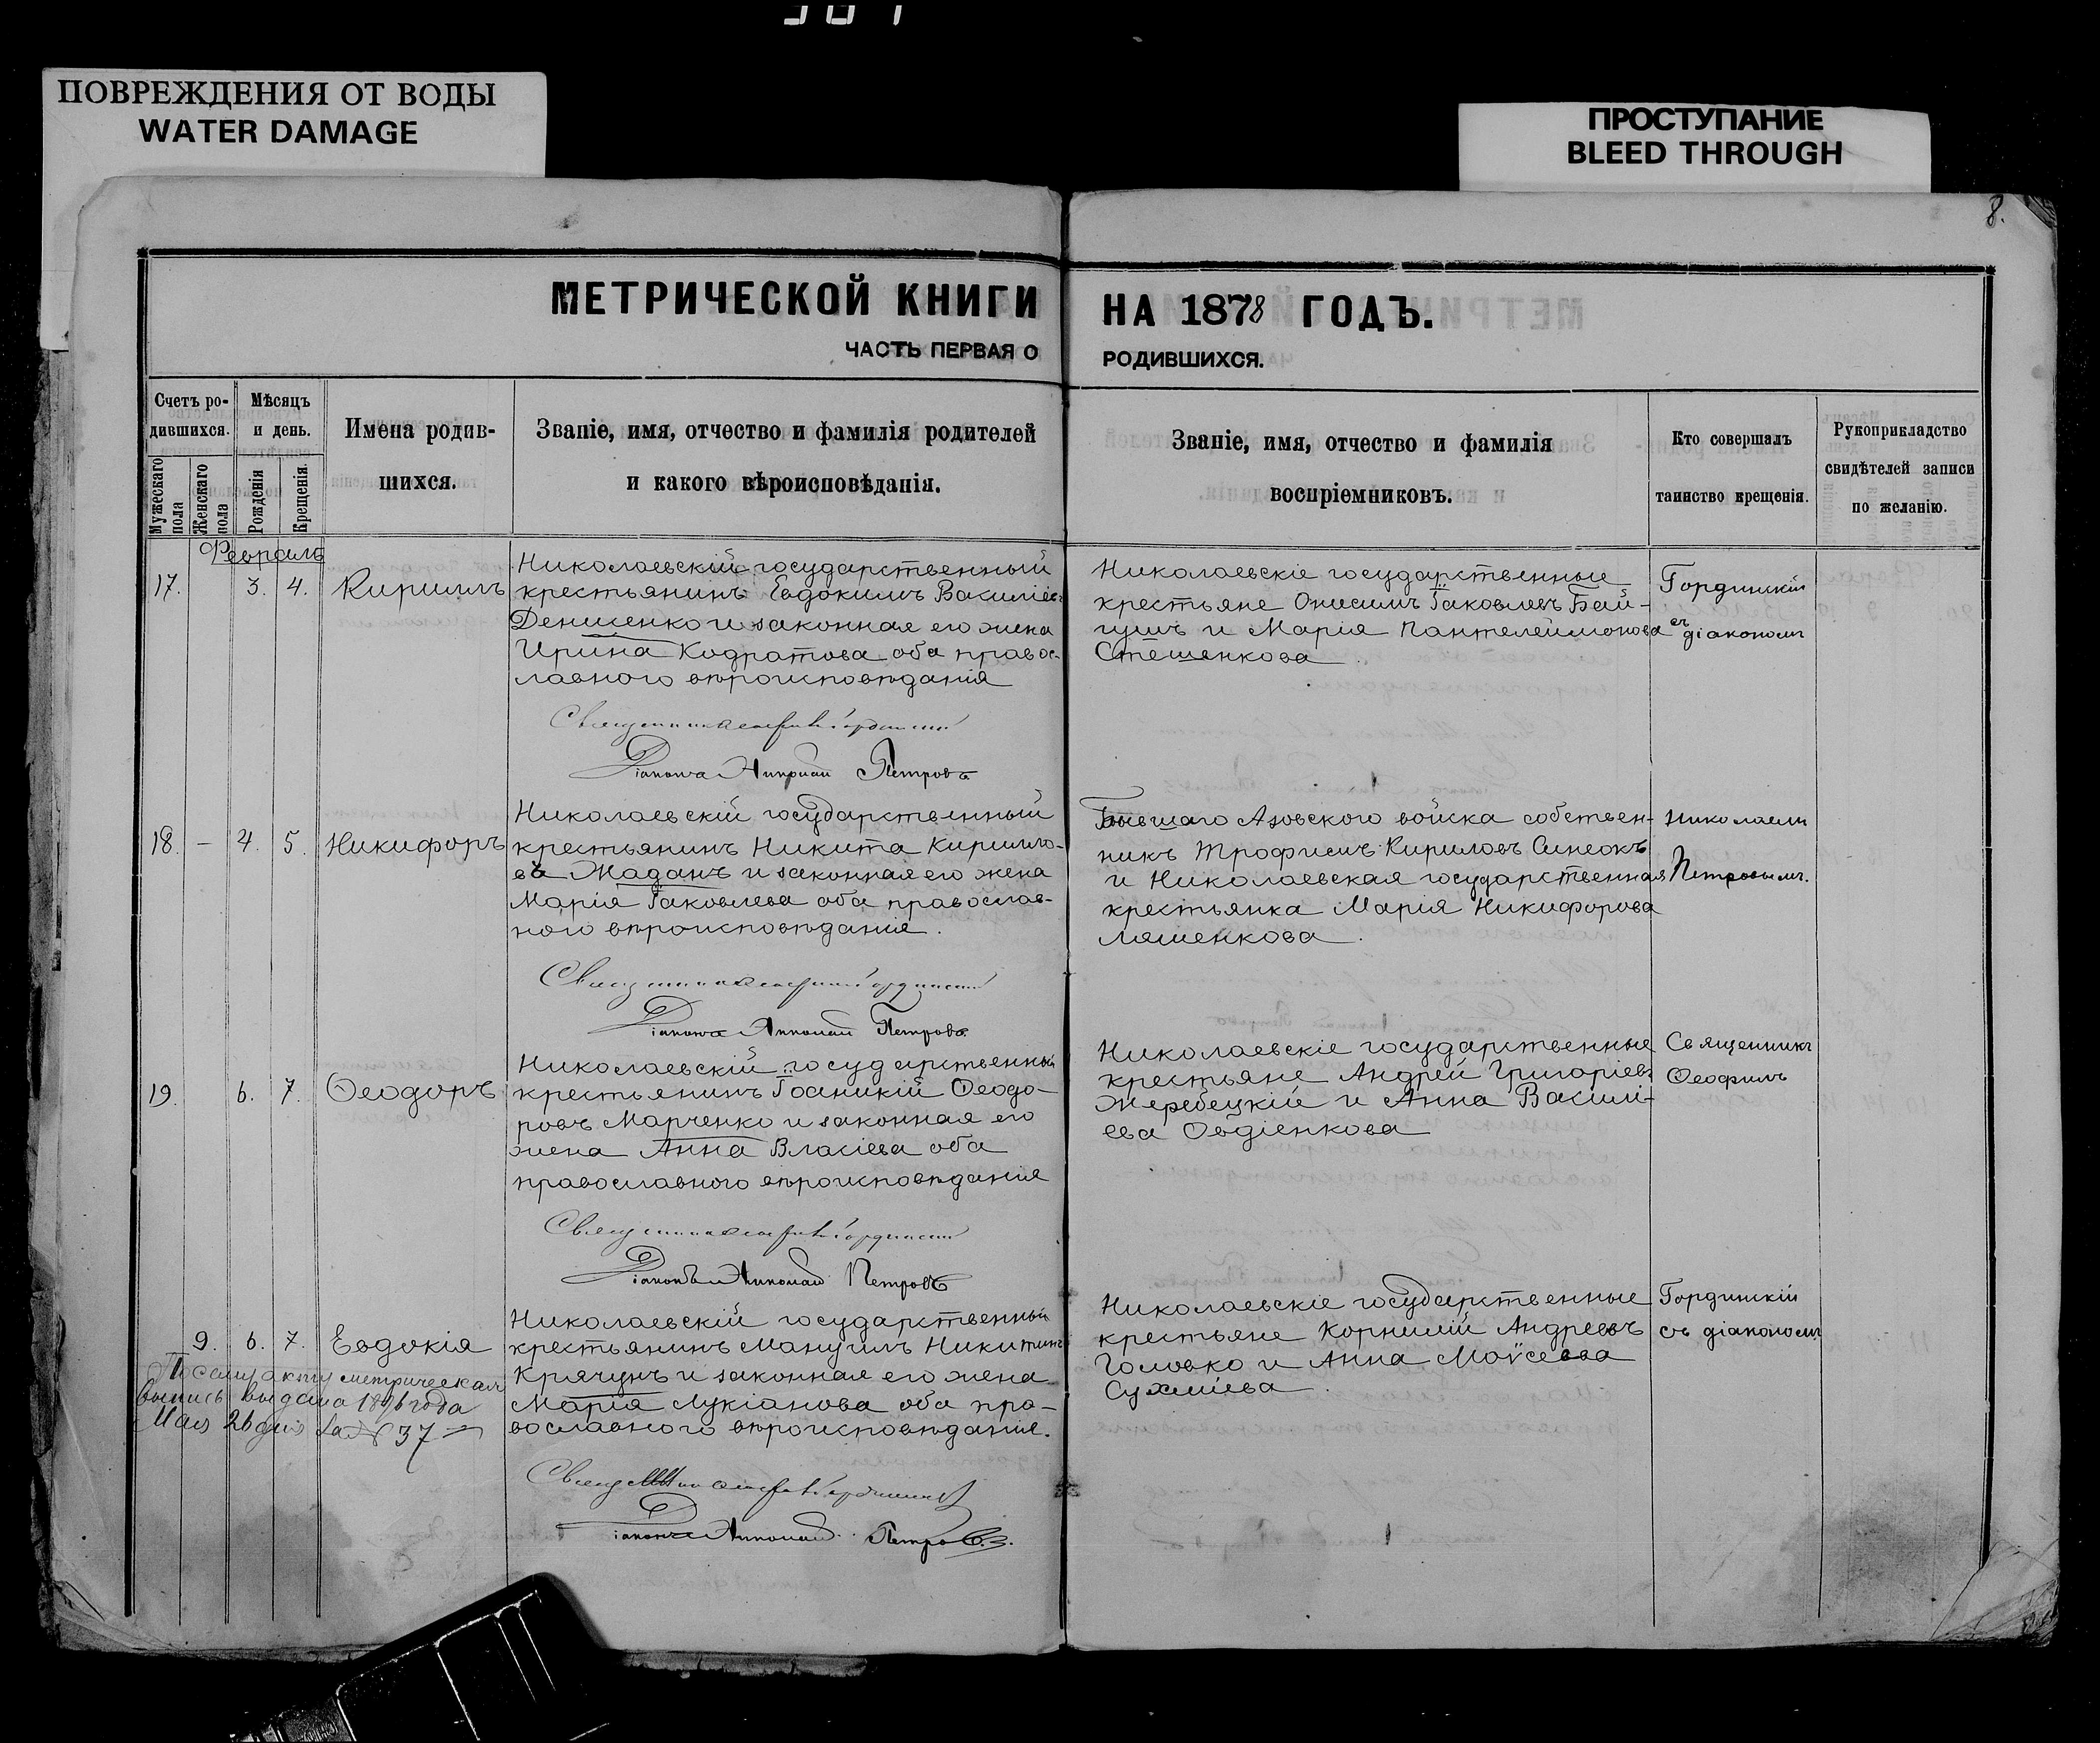 ПОВРЕЖДЕНИЯ ОТ ВОДЫ
WATER DAMAGE
ПРОСТУПАНИЕ
BLEED THROUGH
8.
МЕТРИЧЕСКОЙ КНИГИ
НА 1878 ГОДЪ.
ЧАСТЬ ПЕРВАЯ О
РОДИВШИХСЯ.
Счетъ ро-
дившихся.
Мужескаго
пола
Женскаго
пола
Мѣсяцъ
и день.
Рожденія
Крещенія.
Имена родив-
шихся.
Званіе, имя, отчество и фамилія родителей
и какого вѣроисповѣданія.
Званіе, имя, отчество и фамилія
воспріемниковъ.
Кто совершалъ
таинство крещенія.
Рукоприкладство
свидѣтелей записи
по желанію.
Февраль
17. 3. 4. Кириллъ
Николаевскій государственный
крестьянинъ Евдокимъ Василіев
Денисенко и законная его жена
Ирина Кодратова оба правос-
лавного вѣроисповѣданія
Діаконъ Николай Петровъ
Николаевскіе государственные
крестьяне Онисимъ Іаковлевъ Бай-
гушъ и Марія Пантелеймонова
Стешенкова.
Гординскій
съ діакономъ
18. – 4. 5. Никифоръ
Николаевскій государственный
крестьянинъ Никита Кирилло-
въ Жаданъ и законная его жена
Марія Іаковлева оба православ-
ного вѣроисповѣданія.
Діаконъ Николай Петровъ
Бывшаго Азовского войска собствен-
никъ Трофимъ Кириловъ Синеокъ
и Николаевская государственная
крестьянка Марія Никифорова
Ляшенкова.
Николаем
Петровымъ.
19. 6. 7. Ѳеодоръ
Николаевскій государственный
крестьянинъ Іоаникій Ѳеодо-
ровъ Марченко и законная его
жена Анна Власіева оба
православного вѣроисповѣданія
Діаконъ Николай Петровъ
Николаевскіе государственные
крестьяне Андрей Григоріев
Жеребецкій и Анна Васили-
ева Овдіенкова
Священникъ
Ѳеофилъ
9. 6. 7. Евдокія
Николаевскій государственный
крестьянинъ Мануилъ Никитинъ
Крячунъ и законная его жена
Марія Лукіанова оба пра-
вославного вѣроисповѣданія.
Діаконъ Николай Петровъ.
Николаевскіе государственные
крестьяне Корнилій Андреевъ
Головко и Анна Моѵсеева
Сухміева.
Гординскій
съ діакономъ
По сему акту метрическая
выпись выдана 1896 года
Мая 26 дня за № 37